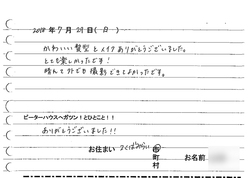 2018年7月29日(日)
かわいい髪型とメイクありがとうございました。
とても楽しかったです!
晴れて外でも撮影できてよかったです。
ピーターハウスへガツン!とひとこと!!
ありがとうございました!!
お住まい つくばみらい 市 町 村 お名前